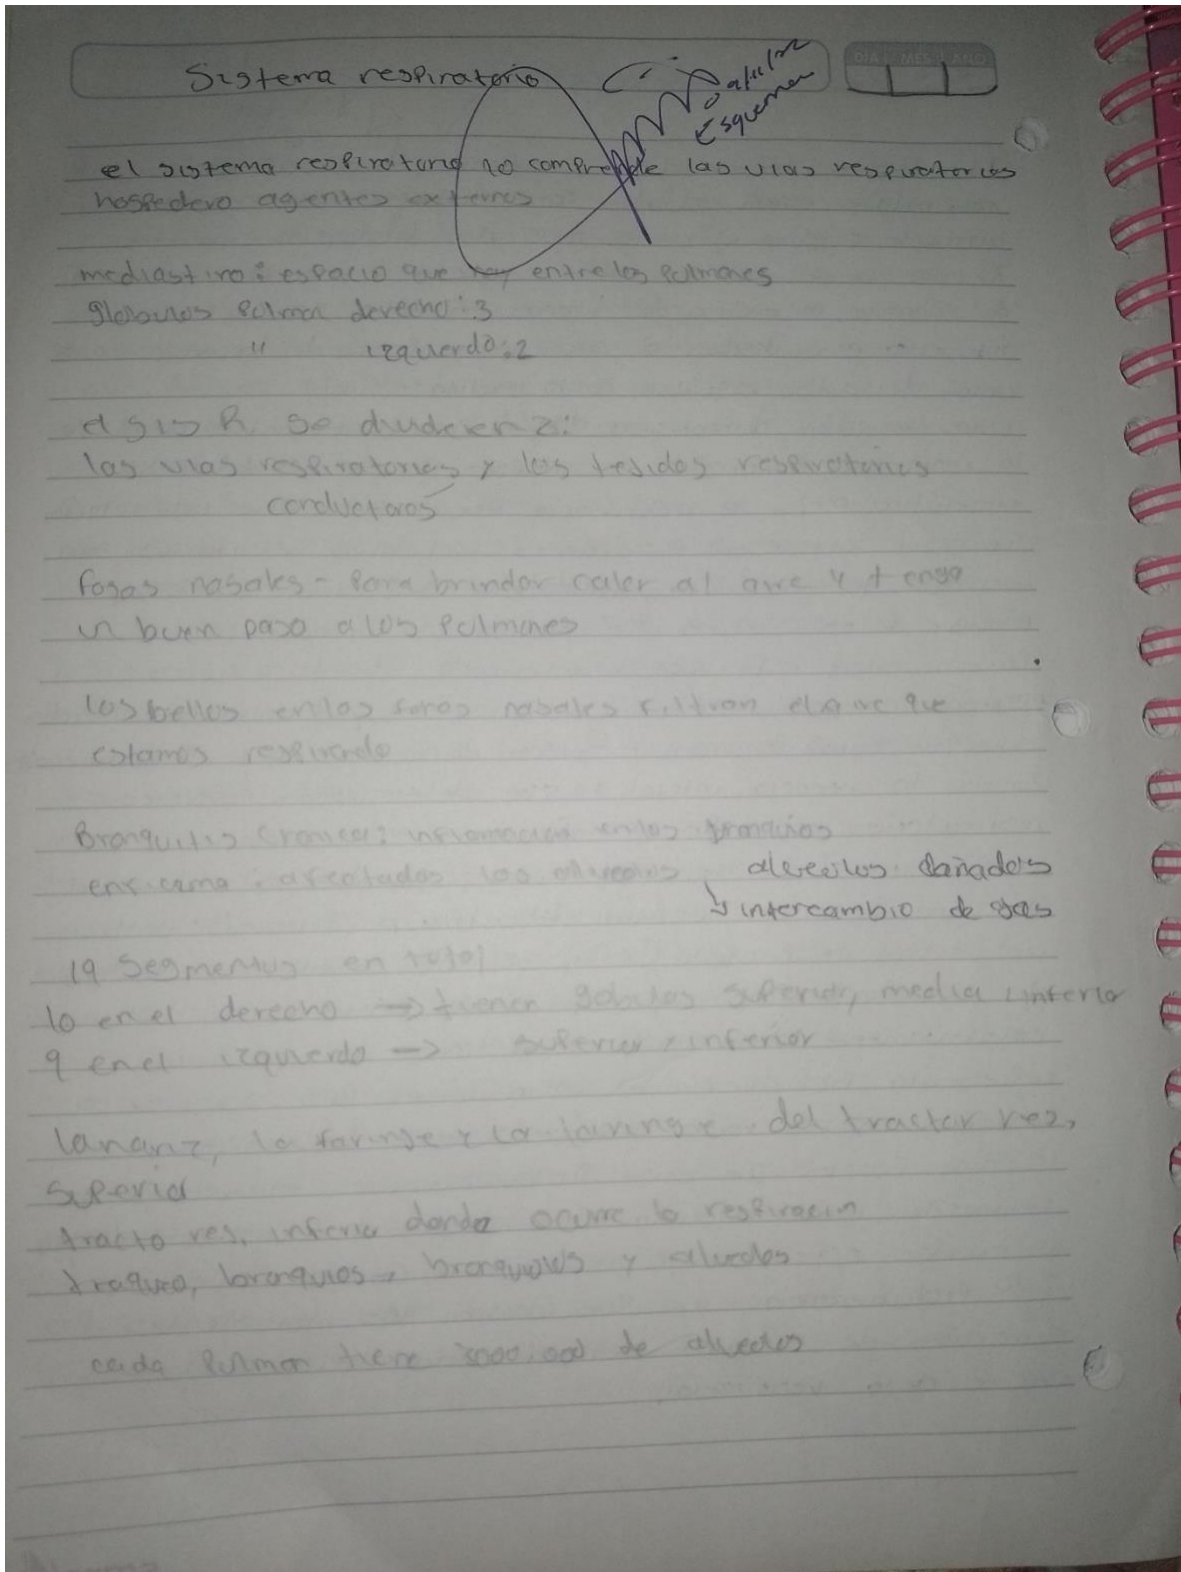 Sistema respiratorio
DIA MES AÑO
Esquema
el sistema respiratorio no comprende las vias respiratorias
hospedero agentes externos
mediastino: espacio que hay entre los pulmones
pulmon derecho: 3
" izquerdo: 2
el sis R se divide en 2:
las vias respiratorias y los tejidos respiratorios
conductoras
fosas nasales - para brindar calor al aire y tenga
un buen paso a los pulmones
los bellos en las fosas nasales filtran el aire que
estamos respirado
Bronquitis cronica: inflamacion en los bronquios
enficema: afectados los alveolos, alveolos dañados
↳ intercambio de gas
19 segmentos en total
10 en el derecho → tienen superior, media inferio
9 en el izquerdo → superior, inferior
la nariz, la faringe y la laringe del tractor res,
superior
tracto res, inferior donde ocurre la respiracin
traquea, bronquios, bronquiolos y alveolos
cada pulmon tiene de alveolos